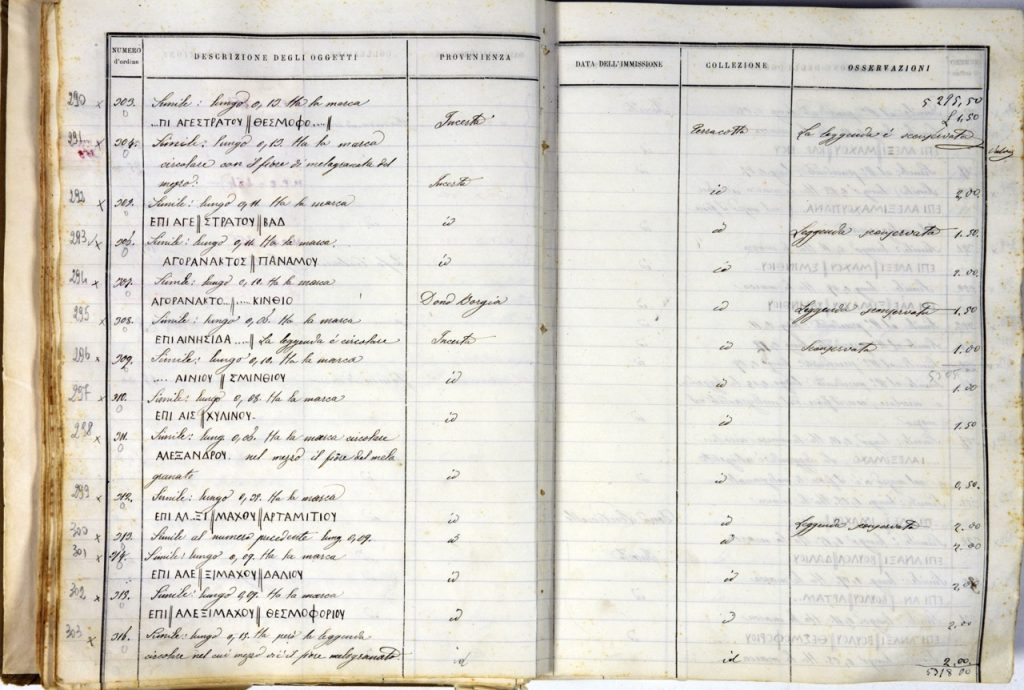 NUMERO d'ordine DESCRIZIONE DEGLI OGGETTI PROVENIENZA DATA DELL'IMMISSIONE COLLEZIONE OSSERVAZIONI
5295,50
290 x 303. Simile: lungo 0,13. Ha la marca £ 1,50
...ΠΙ ΑΓΕΣΤΡΑΤΟΥ || ΘΕΣΜΟΦΟ....|| Incerta Terracotta La leggenda è sconservata
x 304. Simile: lungo 0,13. Ha la marca
circolare con il fiore di melogranata del
mezzo. Incerta id 2,00
292 x 305. Simile: lungo 0,11. Ha la marca
ΕΠΙ ΑΓΕ || ΣΤΡΑΤΟΥ || ΒΑΔ id id Leggenda sconservata 1.50
293 306. Simile: lungo 0,11. Ha la marca.
ΑΓΟΡΑΝΑΚΤΟΣ || ΠΑΝΑΜΟΥ id id 2.00
294 x 307. Simile: lungo 0,10. Ha la marca
ΑΓΟΡΑΝΑΚΤΟ...||.....ΚΙΝΘΙΟ Dono Borgia id Leggenda sconservata 1,50
295 x 308. Simile: lungo 0,08. Ha la marca
ΕΠΙ ΑΙΝΗΣΙΔΑ....|| La leggenda è circolare Incerta id Sconservata 1.00
296 x 309. Simile: lungo 0,10. Ha la marca
.... ΑΙΝΙΟΥ || ΣΜΙΝΘΙΟΥ id id 1.00
297 x 310. Simile: lungo 0,08. Ha la marca
ΕΠΙ ΑΙΣ || ΧΥΛΙΝΟΥ. id id 1.50
298 x 311. Simile: lung 0,08. Ha la marca circolare
ΑΛΕΞΑΝΔΡΟΥ. nel mezzo il fiore del mela
granato id id 0,50
299 x 312. Simile: lungo 0,08. Ha la marca
ΕΠΙ ΑΛ..ΞΙ || ΜΑΧΟΥ || ΑΡΤΑΜΙΤΙΟΥ id id Leggenda sconservata 2.00
300 x 313. Simile al numero precedente lung. 0,09. id id 2.00
301 x 314. Simile: lungo 0,09. Ha la marca
ΕΠΙ ΑΛΕ || ΞΙΜΑΧΟΥ || ΔΑΛΙΟΥ id id 2,00
302 x 315. Simile: lungo 0,09. Ha la marca
ΕΠΙ || ΑΛΕΞΙΜΑΧΟΥ || ΘΕΣΜΟΦΟΡΙΟΥ id id 2,00
303 x 316. Simile: lungo 0,13. Ha però la leggenda
circolare nel cui mezzo vi è il fiore melogranato id id 2,00
5318 00